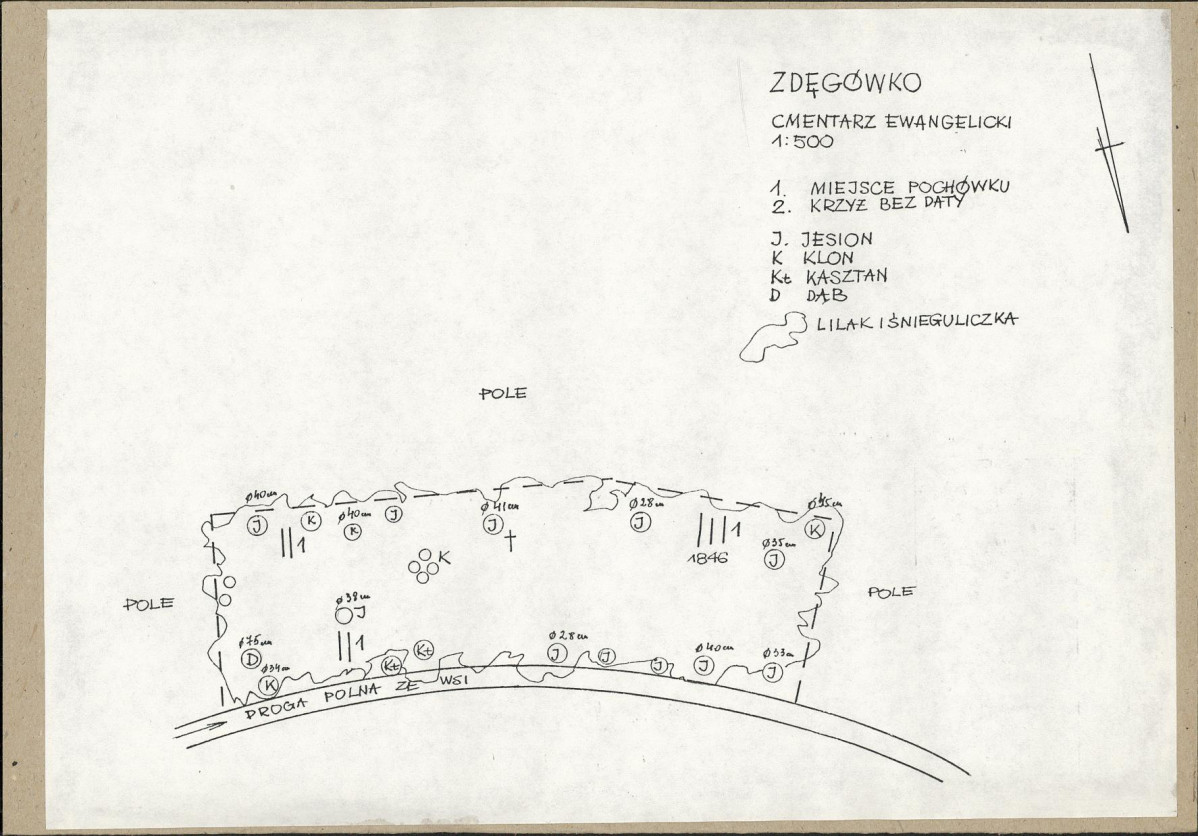 ZDĘGÓWKO
CMENTARZ EWANGELICKI
1:500
1. MIEJSCE POCHÓWKU
2. KRZYŻ BEZ DATY
J. JESION
K KLON
Kt KASZTAN
D DĄB
LILAK I ŚNIEGULICZKA
POLE
Ø40cm
J
K
Ø40cm
K
J
Ø41cm
J
Ø28cm
J
Ø45cm
K
1
1
1846
Ø35cm
J
K
POLE
POLE
Ø38cm
J
1
Ø75cm
D
Ø34cm
K
Kt
Kt
Ø28cm
J
J
J
Ø40cm
J
Ø33cm
J
DROGA POLNA ZE WSI